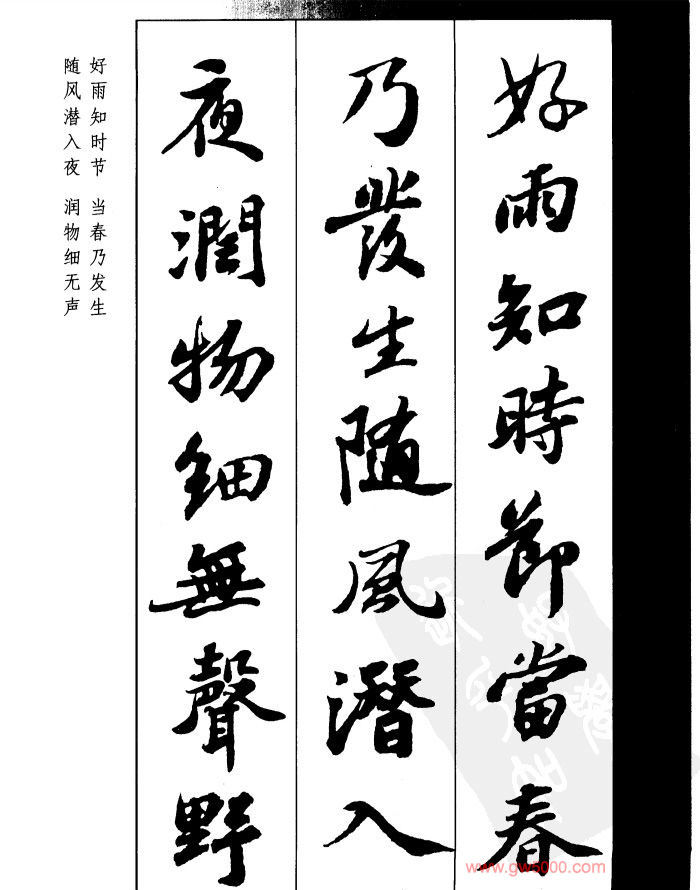 好雨知時節當春
乃發生隨風潛入
夜潤物細無聲野
好雨知时节 当春乃发生
随风潜入夜 润物细无声
www.gw5000.com